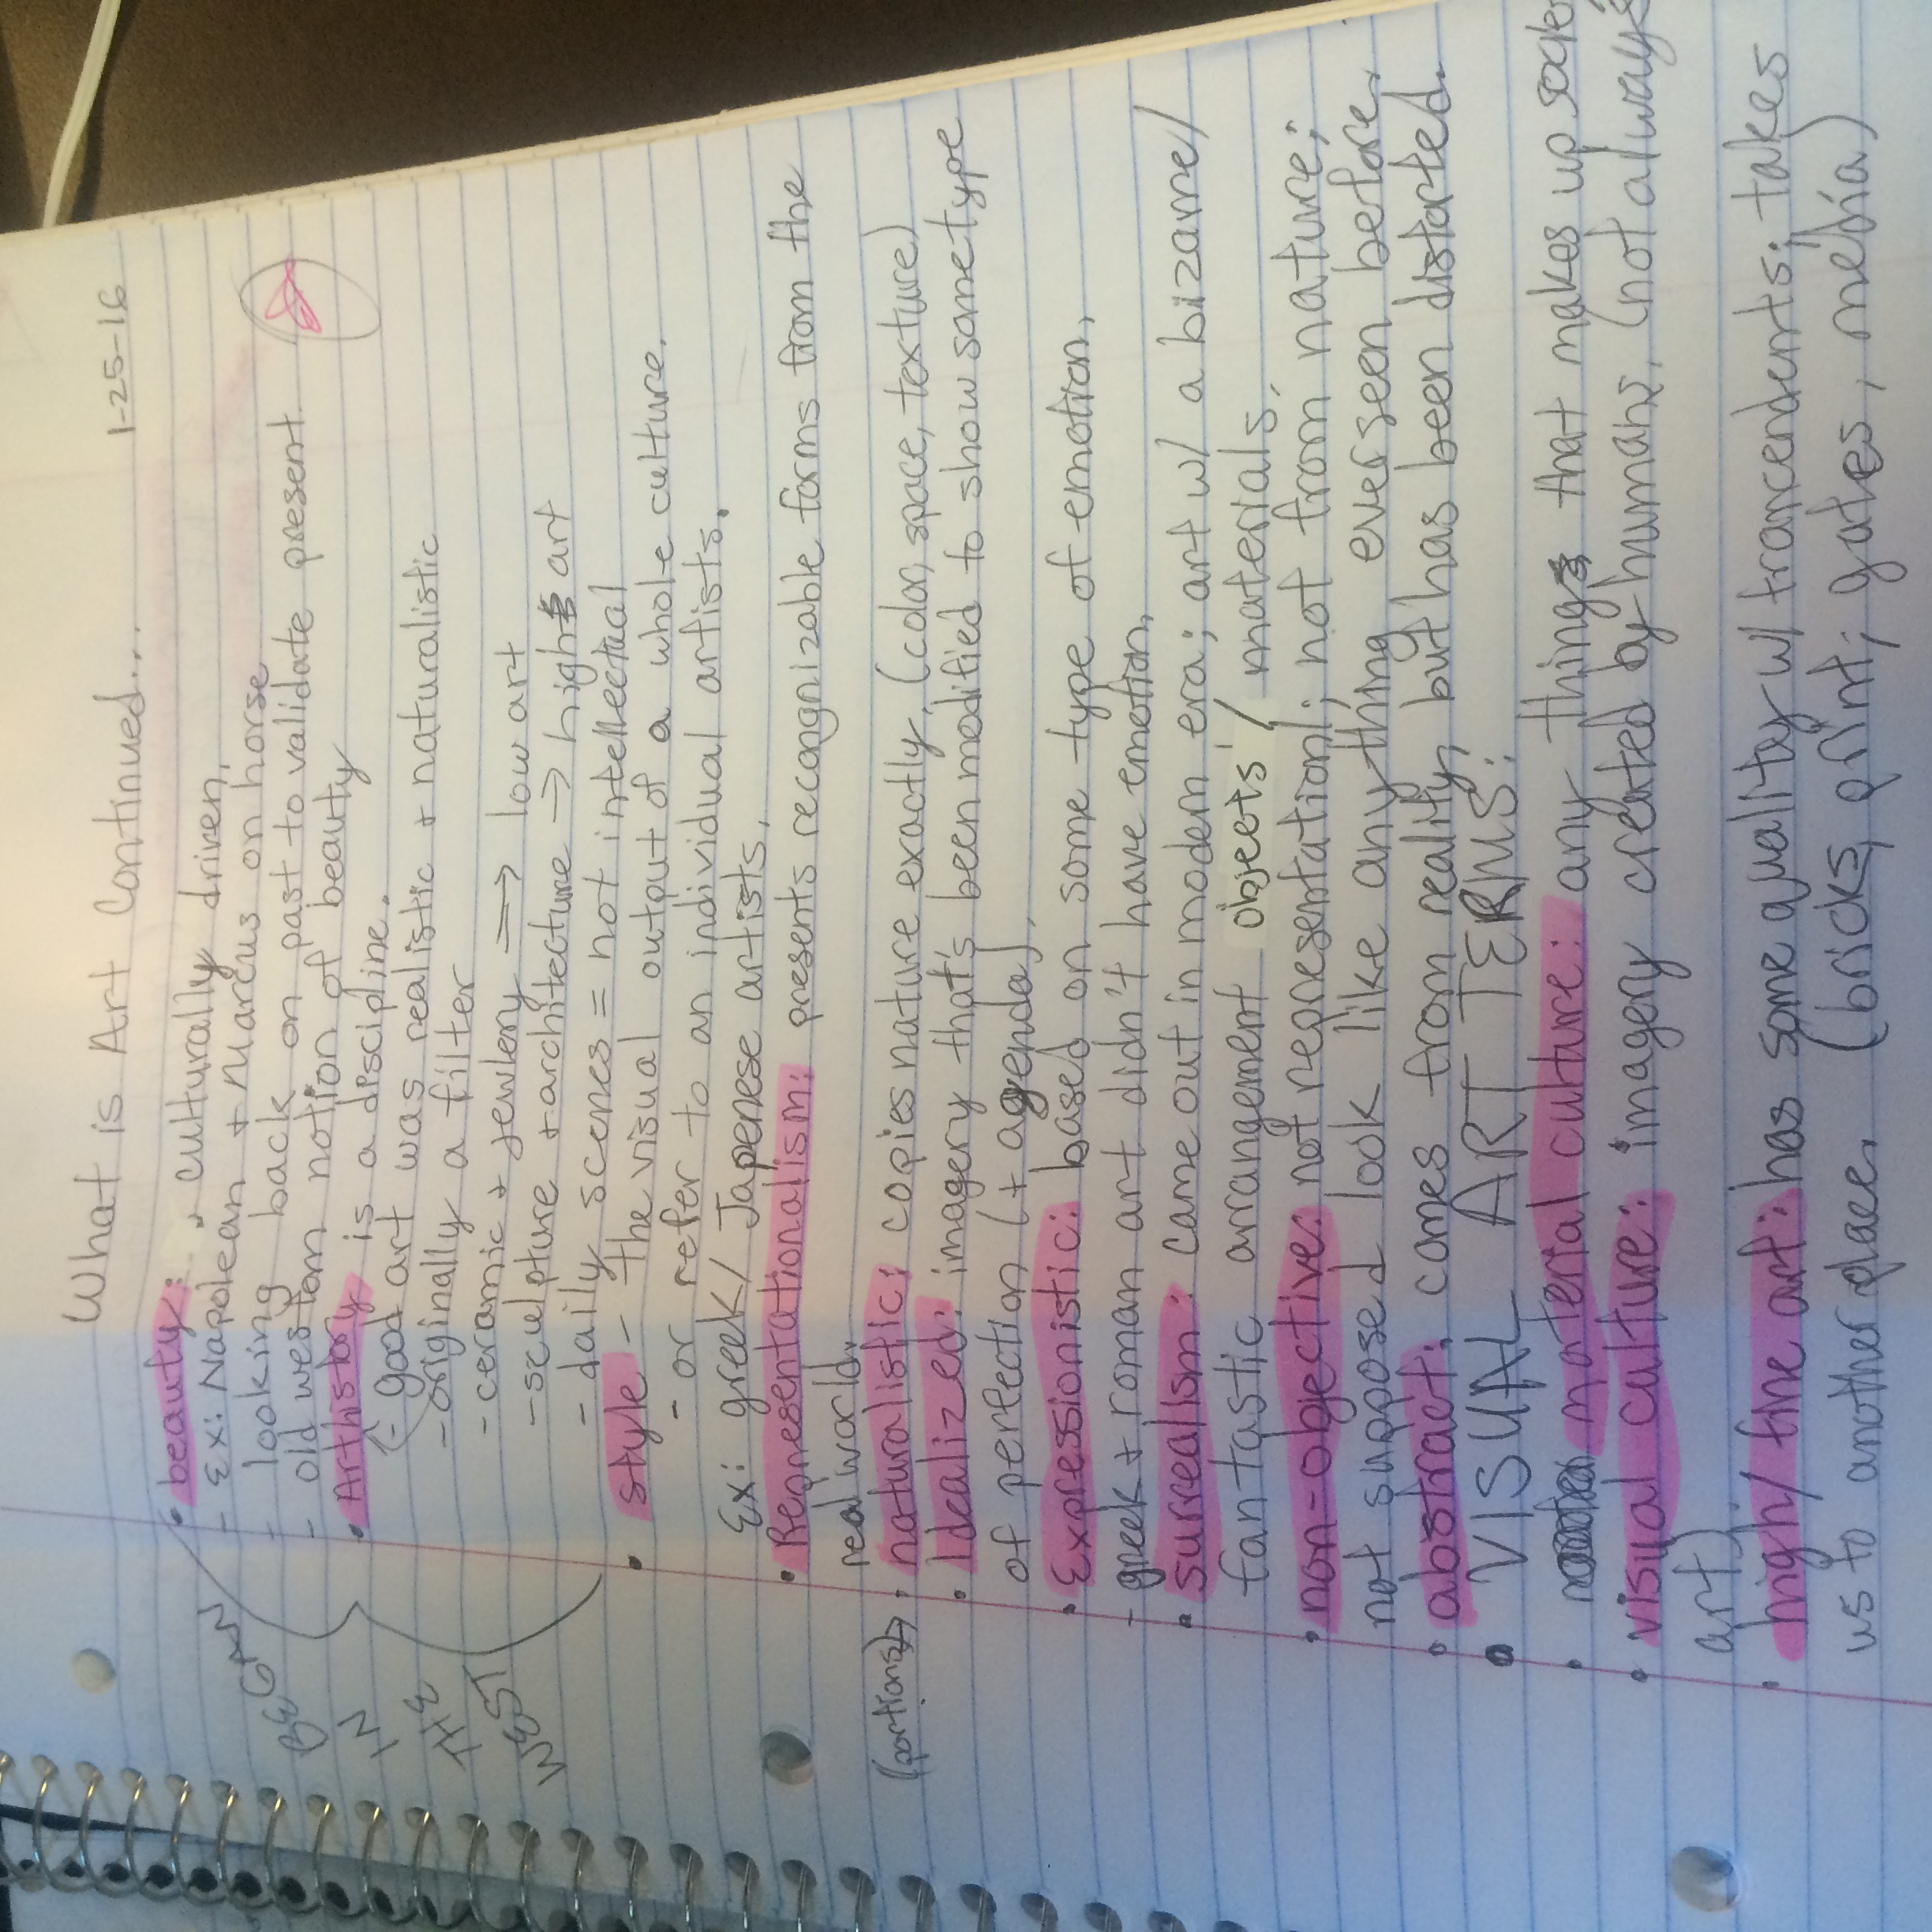 What is Art Continued... 1-25-16
• beauty: culturally driven.
- Ex: Napolean + Marcus on horse
- looking back on past to validate present
- old western notion of beauty
• Art history is a discipline.
- good art was realistic + naturalistic
- originally a filter
- ceramic + jewlery => low art
- sculpture + architecture -> high art
- daily scenes = not intellectual
• style - the visual output of a whole culture.
- or refer to an individual artists.
Ex: greek/Japenese artists.
• Representationalism: presents recongnizable forms from the
real world.
(portions) • naturalistic: copies nature exactly. (color, space, texture)
• Idealized: imagery that's been modified to show some type
of perfection (+ agenda).
• Expressionistic: based on some type of emotion.
- greek + roman art didn't have emotion.
• surrealism: came out in modern era; art w/ a bizarre/
fantastic arrangement objects/ materials.
• non-objective: not representational; not from nature;
not suppose look like anything ever seen before.
• abstract: comes from reality, but has been distorted.
• VISUAL ART TERMS:
• material culture: any thing that makes up
• visual culture: imagery created by humans, (not always
art)
• high/fine art: has some quality w/ trancendents; takes
us to another place. (bricks, print; gates, media)
BEGAN
IN
THE
WEST